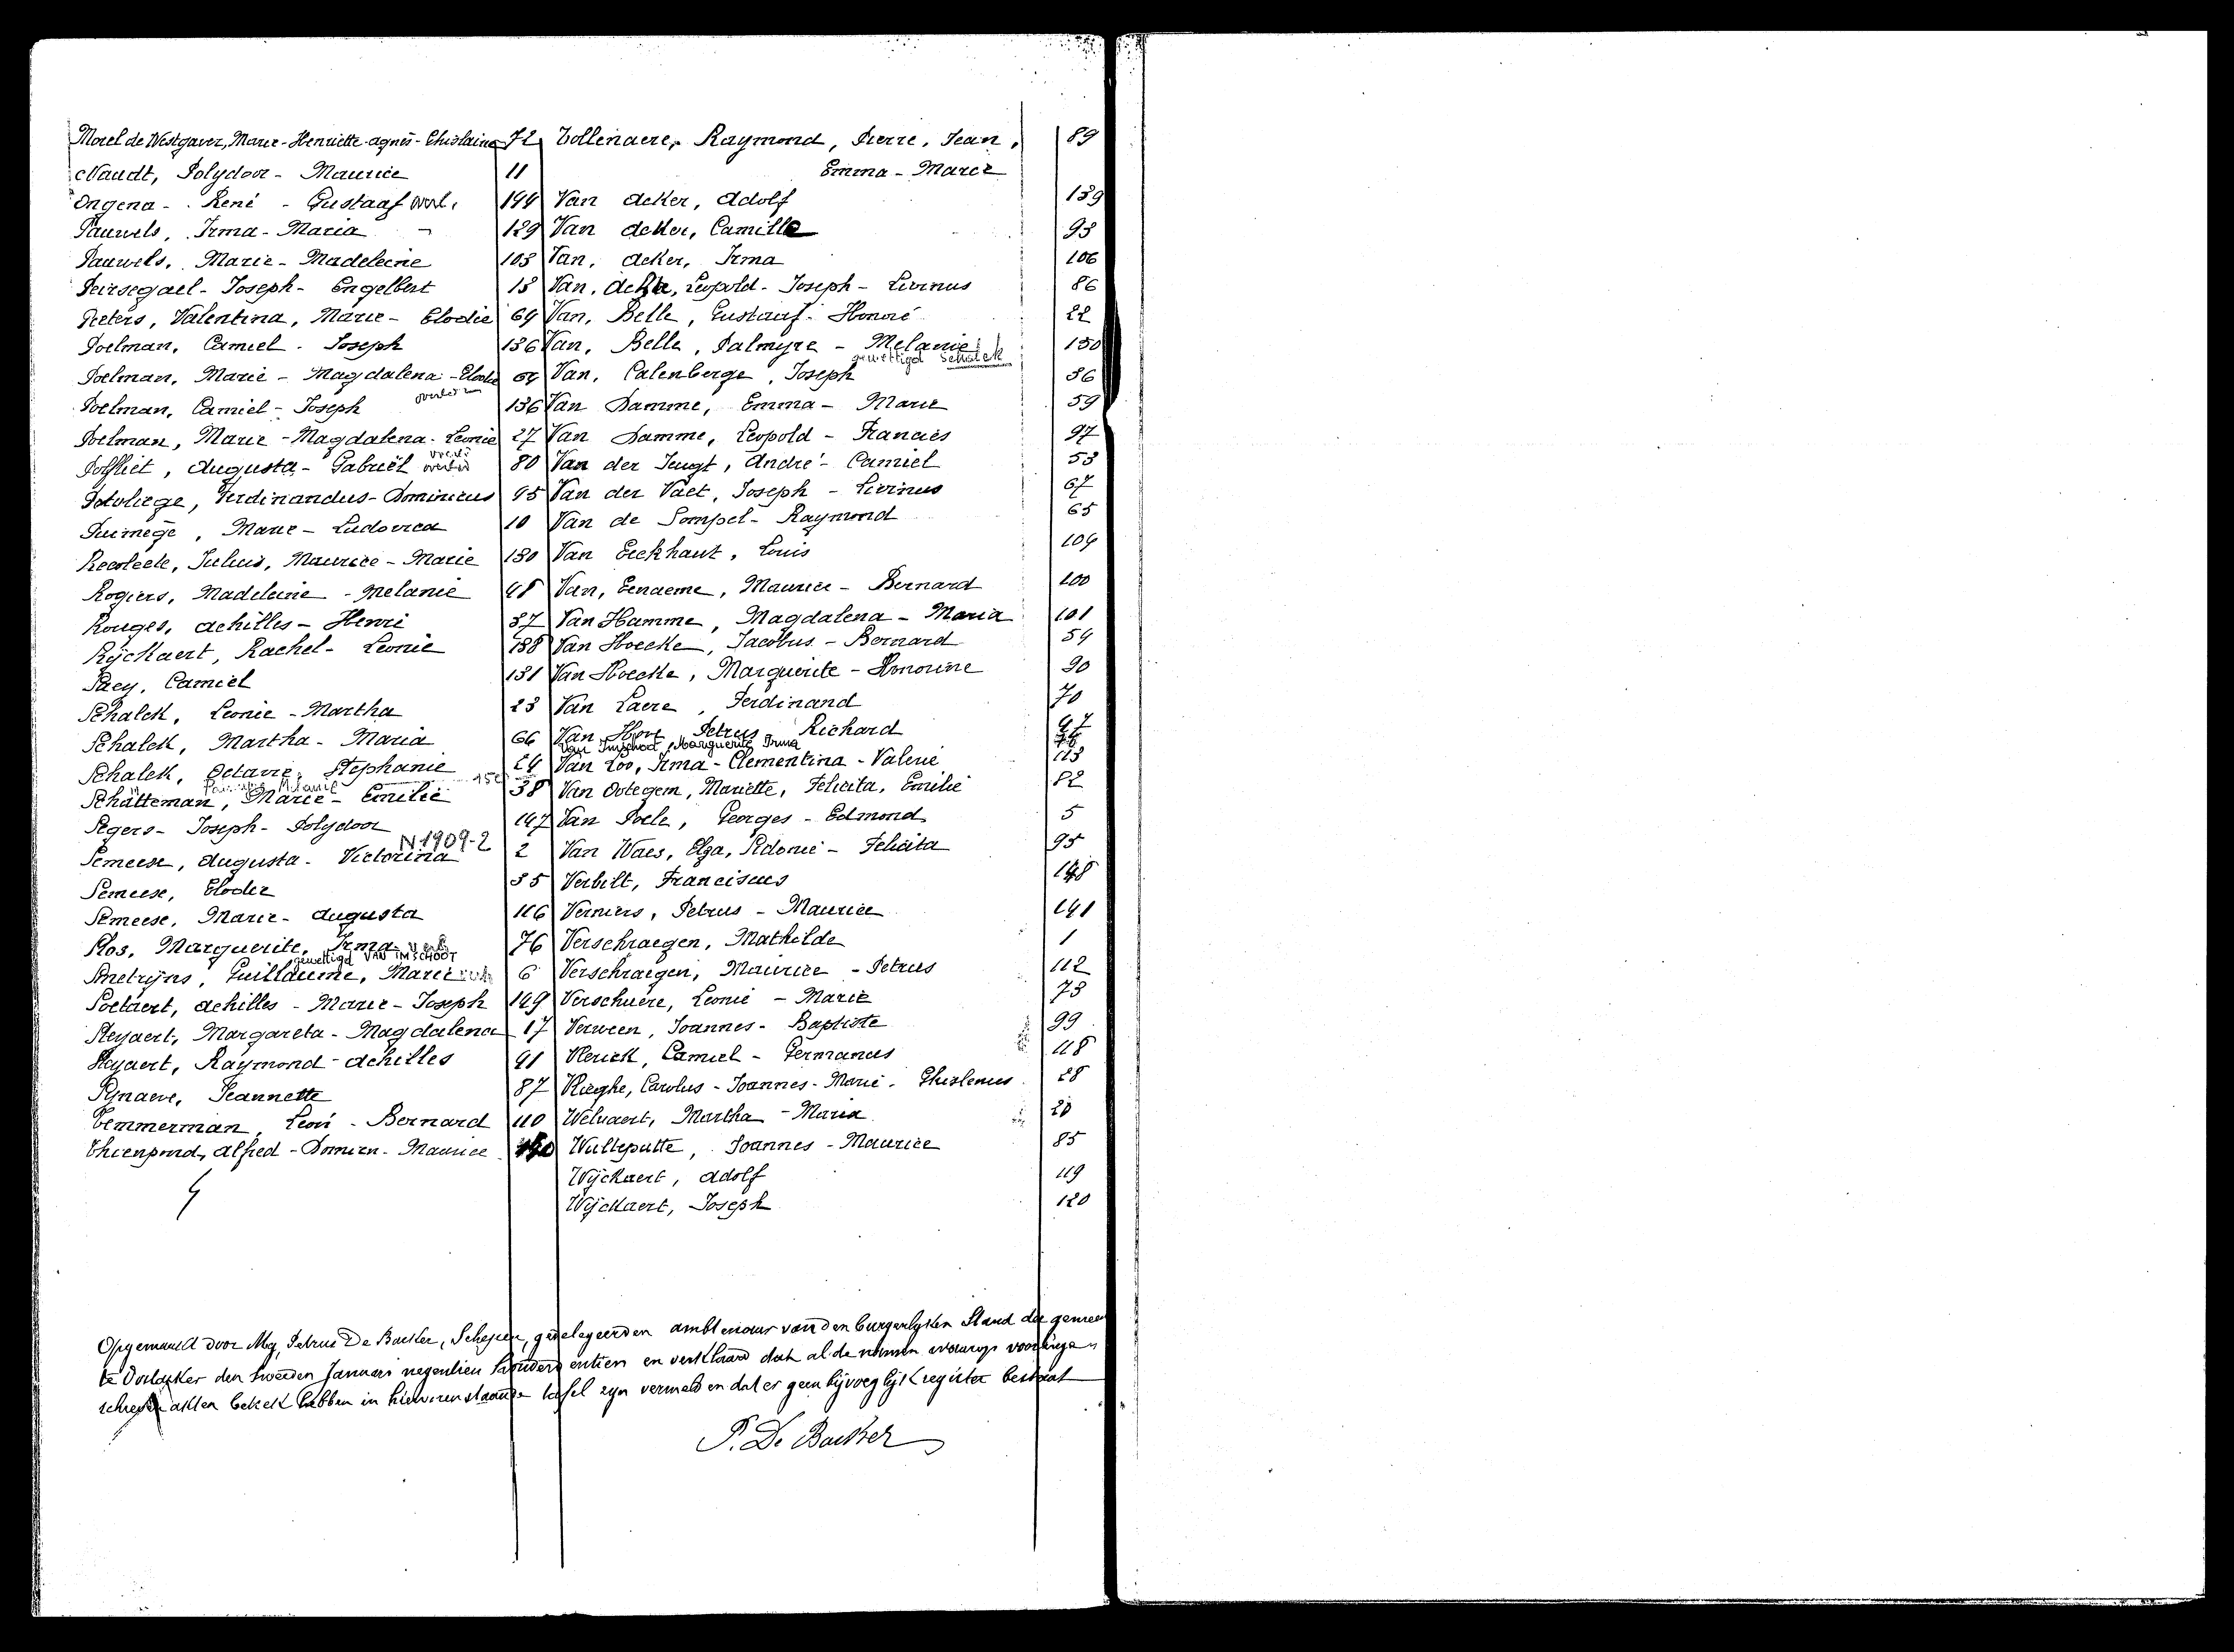 Morel de Westgaver, Marie-Henriette-agnes-Ghislaine 72
Naudt, Polydoor - Maurice 11
Ongena - René - Gustaaf overl. 144
Pauwels, Irma - Maria 129
Pauwels, Marie - Madeleine 103
Peirsegael - Joseph - Engelbert 13
Peeters, Valentina, Marie - Elodie 69
Poelman, Camiel - Joseph 136
Poelman, Marie - Magdalena - Elodie
Poelman, Camiel - Joseph 136
Poelman, Marie - Magdalena - Leonie 27
Potvliet, Augusta - Gabriël 80
Potvliege, Ferdinandus - Dominicus 95
Puimège, Marie - Ludovica 10
Recoleete, Julius, Maurice - Marie 130
Rogiers, Madeleine - Melanie 48
Rouges, achilles - Henri 37
Rÿckaert, Rachel - Leonie 138
Saey, Camiel 131
Schalck, Leonie - Martha 23
Schalck, Martha - Maria 66
Schalck, Octavie, Stephanie 24
Melanie 150
Schatteman, Marie - Emilie 38
Segers - Joseph - Polydoor 147
N 1909-2
Semeese, Augusta - Victorina 2
Semeese, Elodie 35
Semeese, Marie - Augusta 116
Slos, Marguerite, Irma 76
gewettigd VAN IMSCHOOT
Smetrÿns, Guillaume, Marie 6
Soetaert, achilles - Marie - Joseph 149
Steyaert, Margareta - Magdalena 17
Steyaert, Raymond - achilles 91
Synaeve, Jeannette 87
Temmerman, Leon - Bernard 110
Thienpond, Alfred - Damien - Maurice
Tollenaere, Raymond, Pierre, Jean, 89
Emma - Marie
Van acker, Adolf 139
Van acker, Camille 93
Van, acker, Irma 106
Van, acker, Leopold - Joseph - Livinus 86
Van, Belle, Gustaaf - Honoré 22
Van, Belle, Palmyre - Melanie 150
gewettigd Schalck
Van, Calenberge, Joseph 36
Van Damme, Emma - Marie 59
Van Damme, Leopold - Francies 97
Van der Jeugt, André - Camiel 53
Van der Vaet, Joseph - Livinus 67
Van de Sompel - Raymond 65
Van Eeckhaut, Louis 104
Van, Eenaeme, Maurice - Bernard 100
Van Hamme, Magdalena - Maria 101
Van Hoecke, Jacobus - Bernard 54
Van Hoecke, Marguerite - Honorine 90
Van Laere, Ferdinand 70
Van Hove Petrus - Richard 47
Van Imschoot, Marguerite Irma 76
Van Loo, Irma - Clementina - Valerie 113
Van Ootegem, Mariette, Felicita, Emilie 82
Van Poele, Georges - Edmond 5
Van Waes, Elza, Sidonie - Felicita 95
Verbilt, Franciscus 148
Verniers, Petrus - Maurice 141
Verschraegen, Mathilde 1
Verschraegen, Maurice - Petrus 112
Verschuere, Leonie - Marie 73
Verween, Joannes - Baptiste 99
Vlerick, Camiel - Germanus 118
Vlieghe, Carolus - Joannes - Marie - Ghislenus 28
Welvaert, Martha - Maria 20
Wulteputte, Joannes - Maurice 85
Wÿckaert, Adolf 119
Wÿckaert, Joseph 120
Opgemaakt door Mij, Petrus De Backer, Schepen, gedelegeerden ambtenaar van den burgerlyken Stand der gemeen
te Oostacker den tweeden Januari negentien honderd en tien en verklaard dat al de namen waarop voor
schreven akten betrek hebben in hiervorenstaande tafel zyn vermeld en dat er geen bijvoeglijk register bestaat
P. De Backer